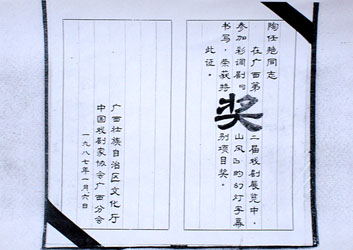 陶任同志
在广西第二届戏剧展览中，
参加彩调剧《山风》的幻灯字幕
书写，荣获特别项目奖。
此证。
奖
广西壮族自治区文化厅
中国戏剧家协会广西分会
一九八七年一月六日